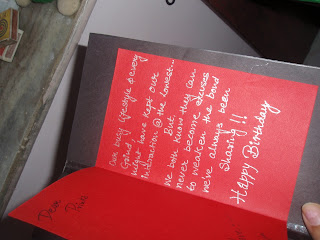 Our busy lifestyle & every
Grind, might have kept our
interaction @ the lowest...
But,
we both know they can
never become excuses
to weaken the bond
we've always been
Sharing!!
Happy Birthday
Dear